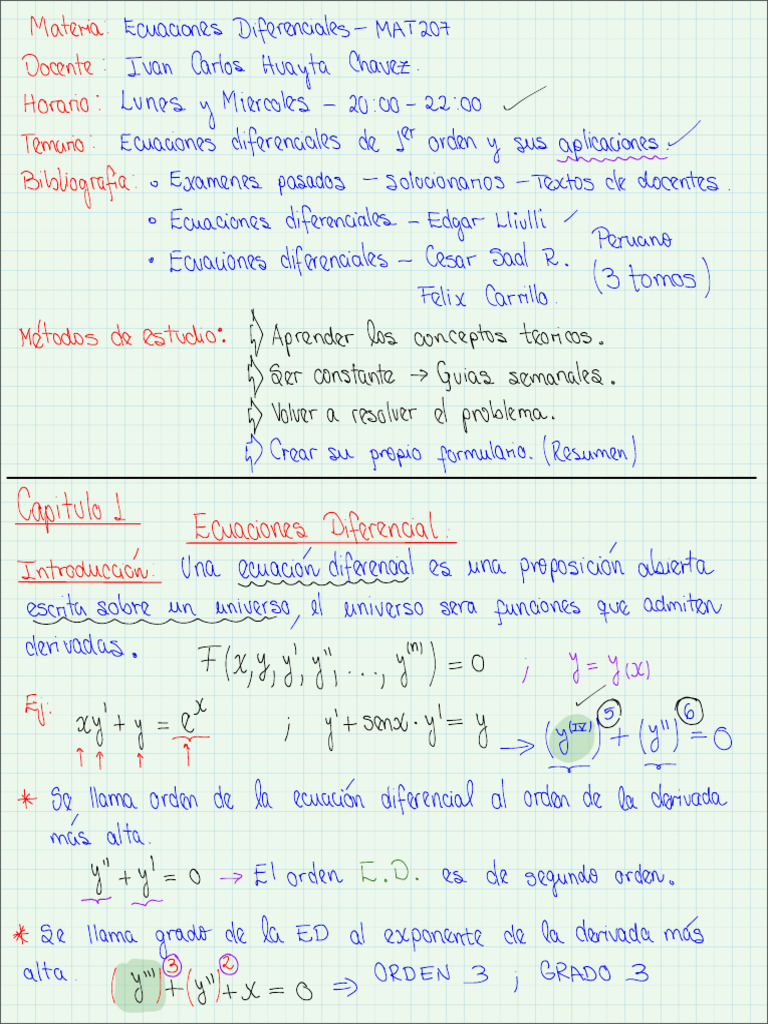 Materia: Ecuaciones Diferenciales – MAT207
Docente: Ivan Carlos Huayta Chavez.
Horario: Lunes y Miercoles – 20:00 – 22:00 ✓
Temario: Ecuaciones diferenciales de 1er orden y sus aplicaciones. ✓
Bibliografía: ∘ Examenes pasados – Solucionarios – Textos de docentes.
∘ Ecuaciones diferenciales – Edgar Lliulli ✓
• Ecuaciones diferenciales – Cesar Saal R.
Felix Carrillo.
Peruano
(3 tomos)
Métodos de estudio: Aprender los conceptos teoricos.
Ser constante → Guias semanales.
Volver a resolver el problema.
Crear su propio formulario. (Resumen)
Capitulo 1
Ecuaciones Diferencial.
Introducción: Una ecuación diferencial es una proposición abierta
escrita sobre un universo, el universo sera funciones que admiten
derivadas. F(x, y, y', y'', ..., y⁽ⁿ⁾) = 0 ; y = y(x)
Ej: xy' + y = eˣ ; y' + senx · y' = y → (y⁽ᴵⱽ⁾)⁵ + (y'')⁶ = 0
* Se llama orden de la ecuación diferencial al orden de la derivada
más alta.
y'' + y' = 0 → El orden E.D. es de segundo orden.
* Se llama grado de la ED al exponente de la derivada más
alta. (y''')³ + (y'')² + x = 0 ⇒ ORDEN 3 ; GRADO 3